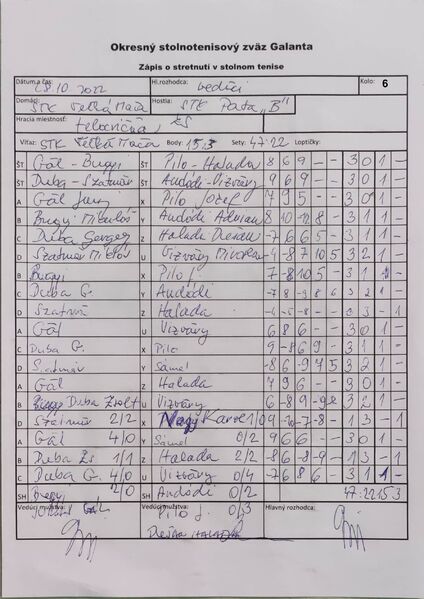 Okresný stolnotenisový zväz Galanta
Zápis o stretnutí v stolnom tenise
Dátum a čas: 28.10 2022 Hl.rozhodca: vedúci Kolo: 6
Domáci: STK Veľká Mača Hostia: STK Pata "B"
Hracia miestnosť: telocvičňa, ZŠ
Víťaz: STK Veľká Mača Body: 15:3 Sety: 47:22 Loptičky:
ŠT Gál - Bugyi ŠT Pilo - Halada 8 6 9 - - 3 0 1 -
ŠT Duba - Szatmár ŠT Andódi - Vizváry 9 6 9 - - 3 0 1 -
A Gál X Pilo Jozef 7 9 5 - - 3 0 1 -
B Bugyi Y Andódi Adrian 8 10 -10 8 - 3 1 1 -
C Duba Z Halada -7 6 6 5 - 3 1 1 -
D Szatmár U Vizváry -8 7 10 5 3 2 1 -
B Bugyi X Pilo J. 7 -8 10 5 - 3 1 1 -
C Duba G. Y Andódi -7 8 -3 8 6 3 2 1 -
D Szatmár Z Halada 0 3 - 1
A Gál U Vizváry 6 8 6 - - 3 0 1 -
C Duba G. X Pilo 9 -8 6 9 - 3 1 1 -
D Y Sámel -8 6 -9 7 5 3 2 1 -
A Gál Z Halada 7 9 6 - - 3 0 1 -
B Duba Zsolt U Vizváry 3 2 1 -
D Szatmár 2/2 X Nagy Karol 1 3 - 1
A Gál 4/0 Y Sámel 0/2 9 6 6 - - 3 0 1 -
B Duba Zs 1/1 Z Halada 2/2 8 -6 -8 -9 - 1 3 - 1
C Duba G. 4/0 U Vizváry 0/4 -7 6 8 6 - 3 1 1 -
SH Bugyi 2/0 SH Andódi 0/2 47:22 15 3
Vedúci mužstva: Gál Vedúci mužstva: Pilo J. 0/3 Hlavný rozhodca: